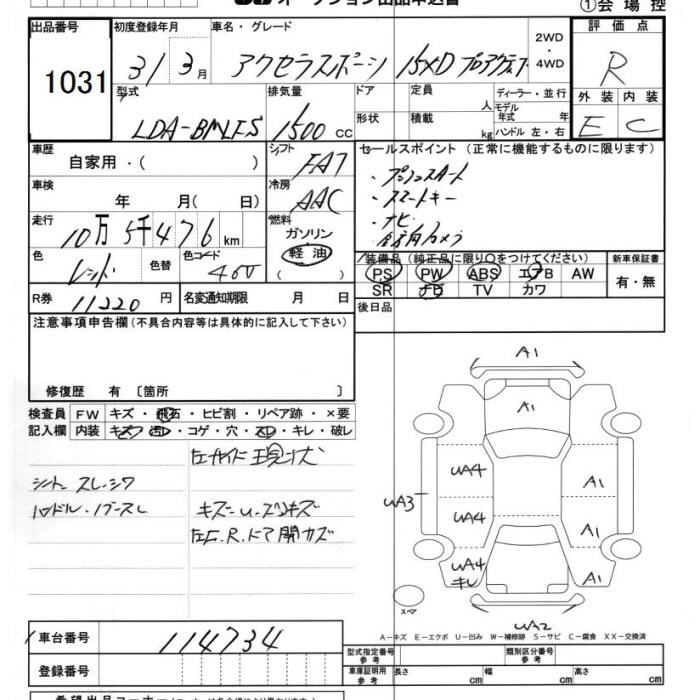 オークション出品申込書
①会場控
出品番号 1031
初度登録年月 31/3月
車名・グレード アクセラスポーツ 15XD プロアクティブ
2WD・4WD
評価点 R
型式 LDA-BM
排気量 1500 cc
ドア
定員 人
ディーラー・並行
モデル年式 年
形状
積載 kg
ハンドル 左・右
外装 E
内装 C
車歴 自家用・( )
シフト FA7
セールスポイント (正常に機能するものに限ります)
・プッシュスタート
・スマートキー
・ナビ
・全方向カメラ
車検 年 月( 日)
冷房 AAC
走行 10万5千476km
燃料 ガソリン 軽油
色 レッド
色替
色コード
装備品 (純正品に限り〇をつけてください)
PS PW ABS エアB AW
SR ナビ TV カワ
新車保証書 有・無
R券 11220円
名変通知期限 月 日
後日品
注意事項申告欄(不具合内容等は具体的に記入して下さい)
修復歴 有 〔箇所 〕
検査員記入欄
FW キズ・飛石・ヒビ割・リペア跡・×要
内装 キズ・汚レ・コゲ・穴・スレ・キレ・破レ
左サイド 現状
シート スレ・シワ
ハンドル・ノブ スレ
キズ・U・ズリキズ
左F.R.ドア開カズ
A1
A1
UA4
A1
UA3
UA4
A1
UA4
キレ
A1
スペア
UA2
A−キズ E−エクボ U−凹み W−補修跡 S−サビ C−腐食 XX−交換済
車台番号 114734
登録番号
型式指定番号 参考
類別区分番号 参考
車庫証明用 参考
長さ cm
幅 cm
高さ cm